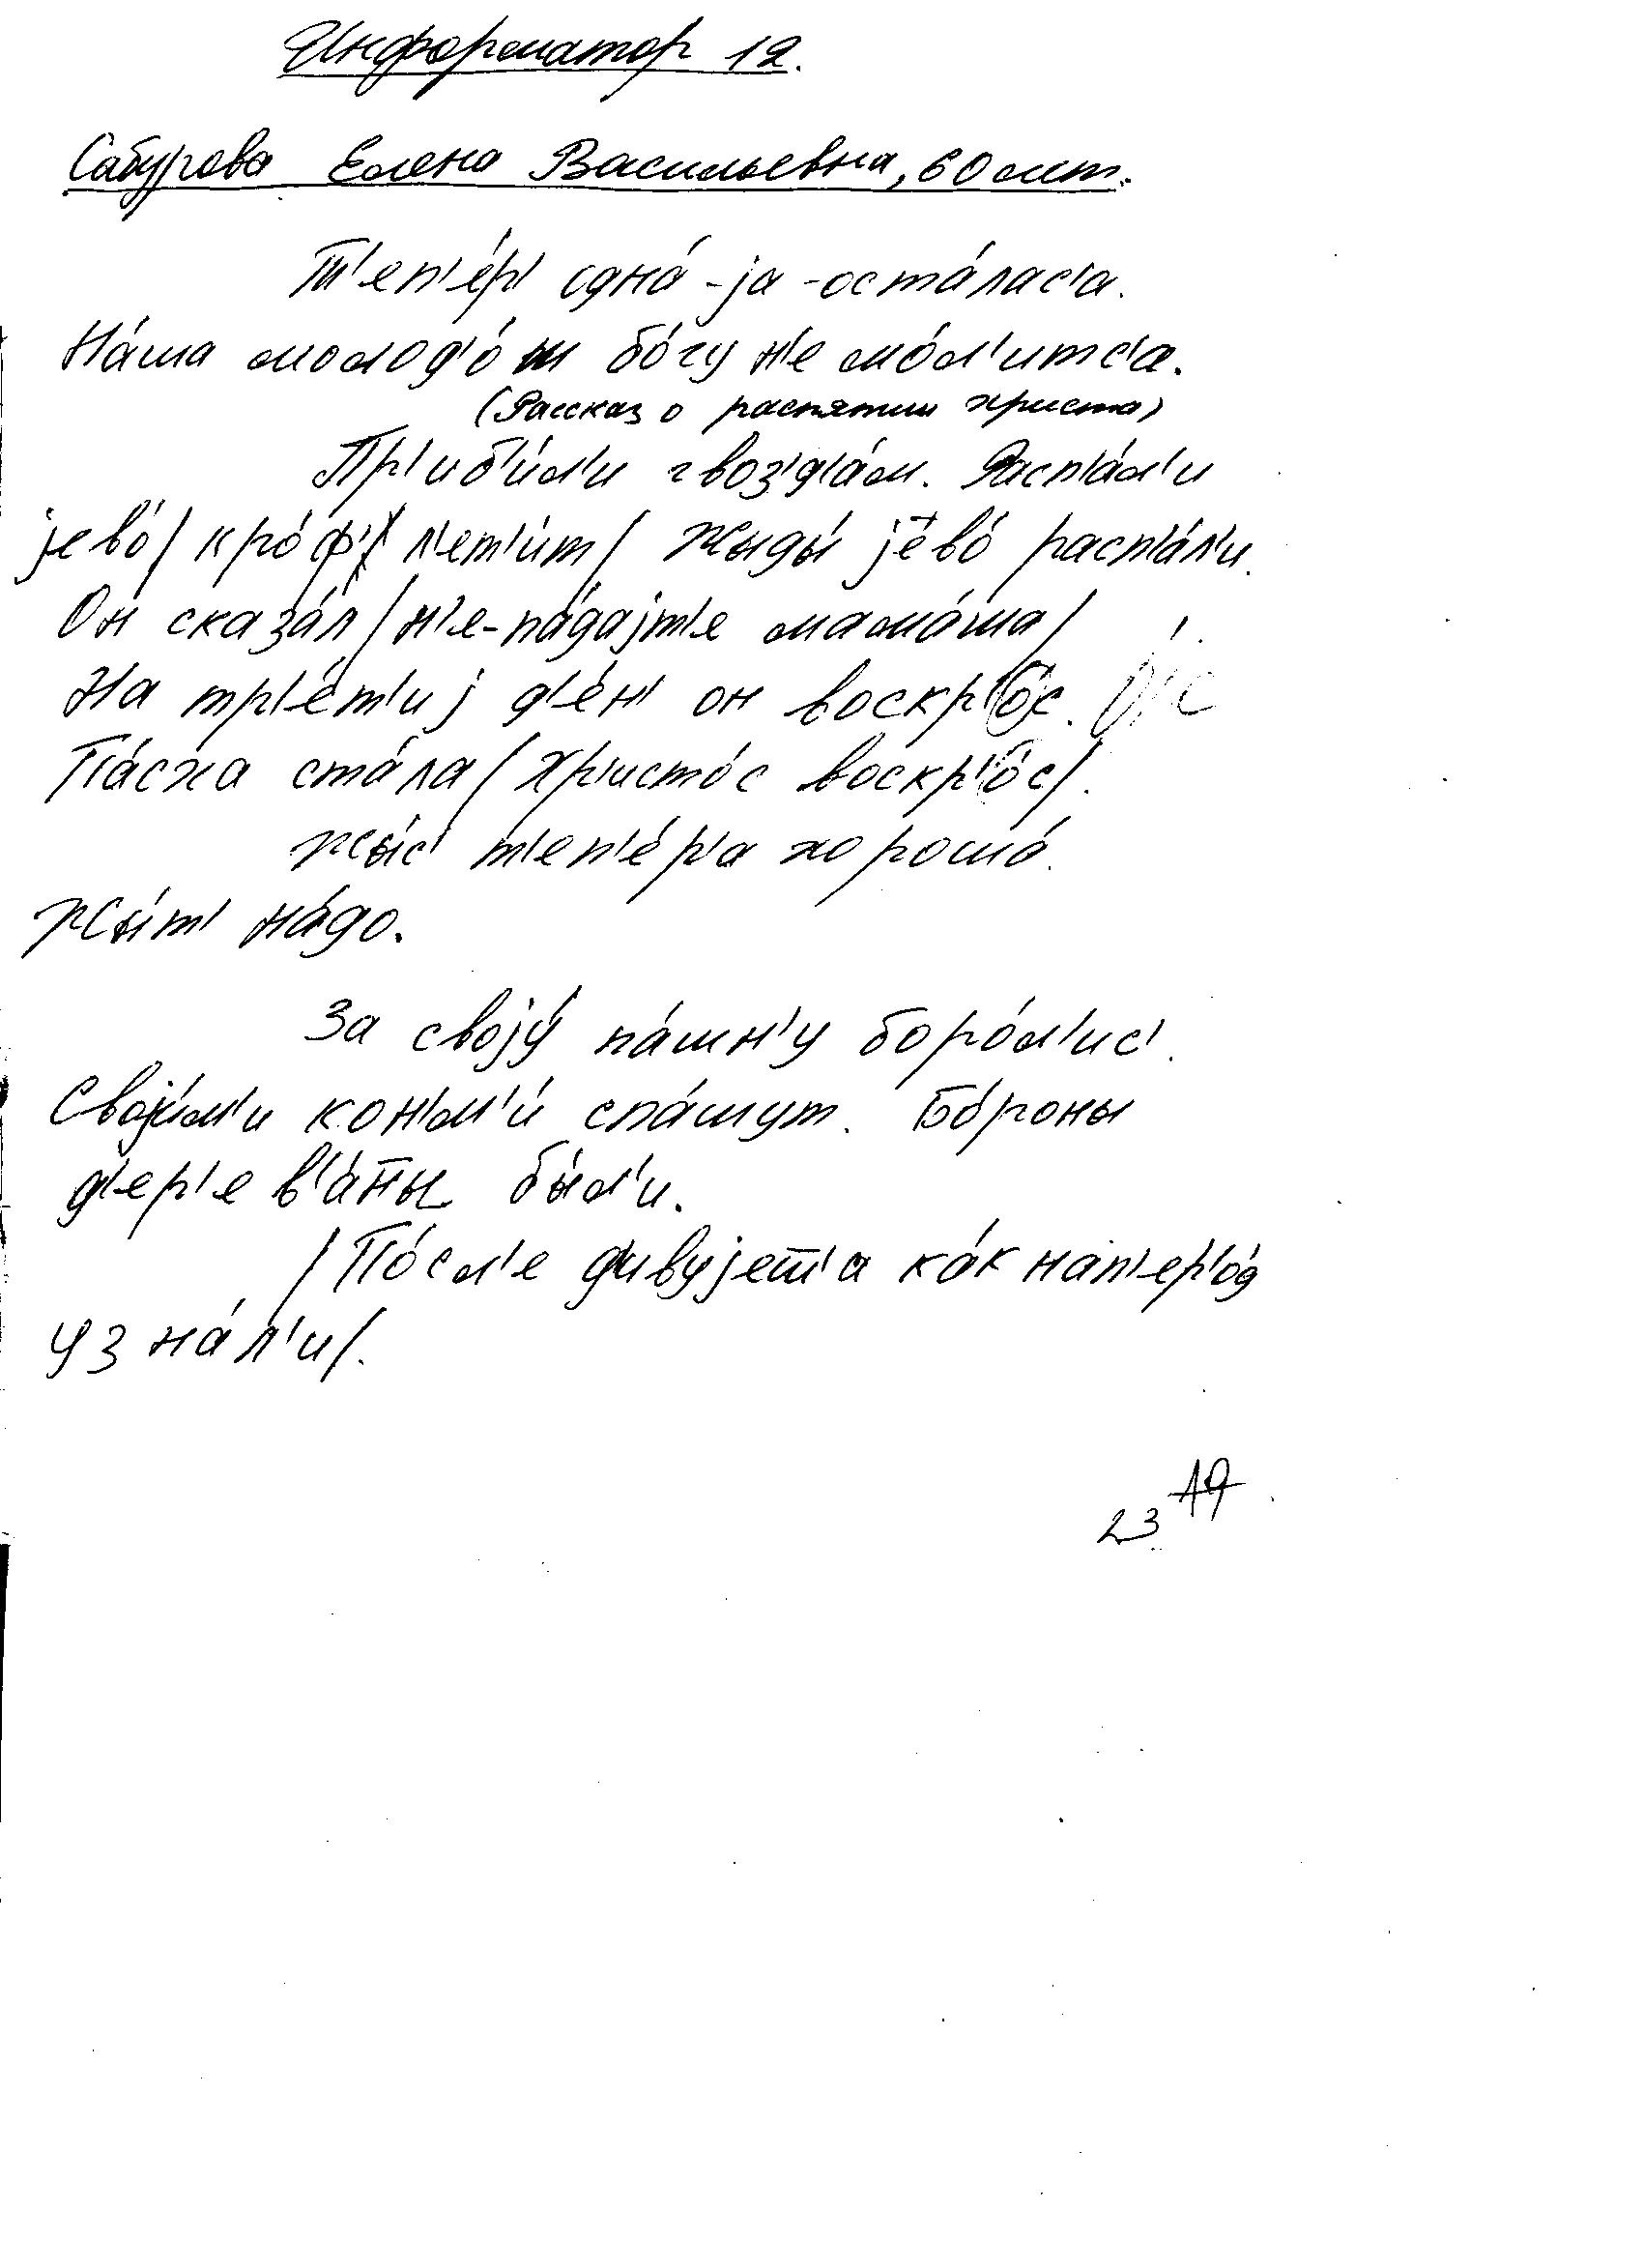 Информатор 12.
Сабурова Елена Васильевна, 60 лет.
Т'еп'е́р' одна́-jа-оста́лас'а.
На́ша молод'о́ш бо́гу н'е мо́л'итс'а.
(Рассказ о распятии Христа)
Пр'иб'и́л'и гвоз'д'а́м. Расп'а́л'и
jево́/ кро́ф'/ л'ет'и́т/ Жыды́ jево́ расп'а́л'и.
Он сказа́л/ н'е-па́дајт'е мама́ша/
На тр'е́т'иј д'е́н' он воскр'о́с.
Па́сха ста́ла/ Хр'исто́с воскр'о́с/.
Жы́с' т'еп'е́р'а хорошо́.
Жы́т' на́до.
За својý па́шн'у боро́л'ис'.
Своји́м'и кон'м'и́ спа́шут. Бо́роны
д'ер'ев'а́н̄ы бы́л'и.
/По́сл'е д'ивуjет̄'а ка́к нап'ер'о́д
узна́л'и/.
23 19